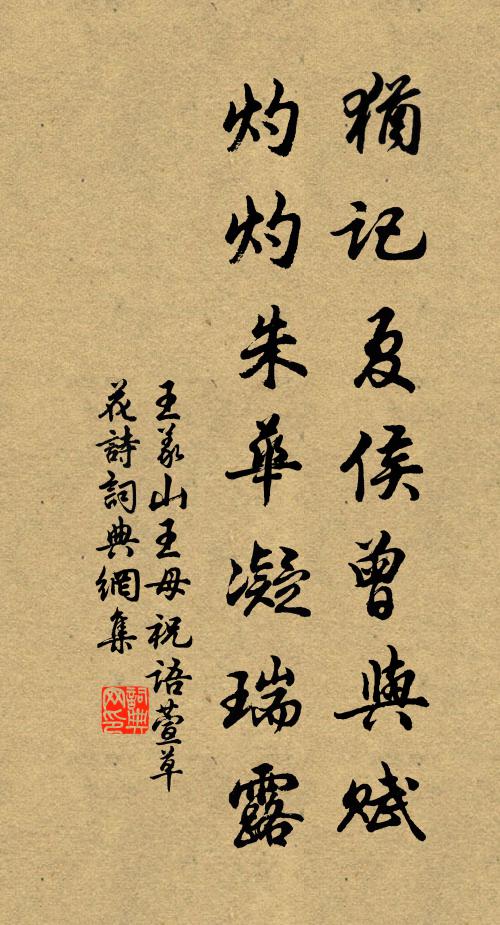 猶記夏侯曾與賦
灼灼朱華凝瑞露
王義山王母祝語萱草
花詩詞典網集
詞典网印